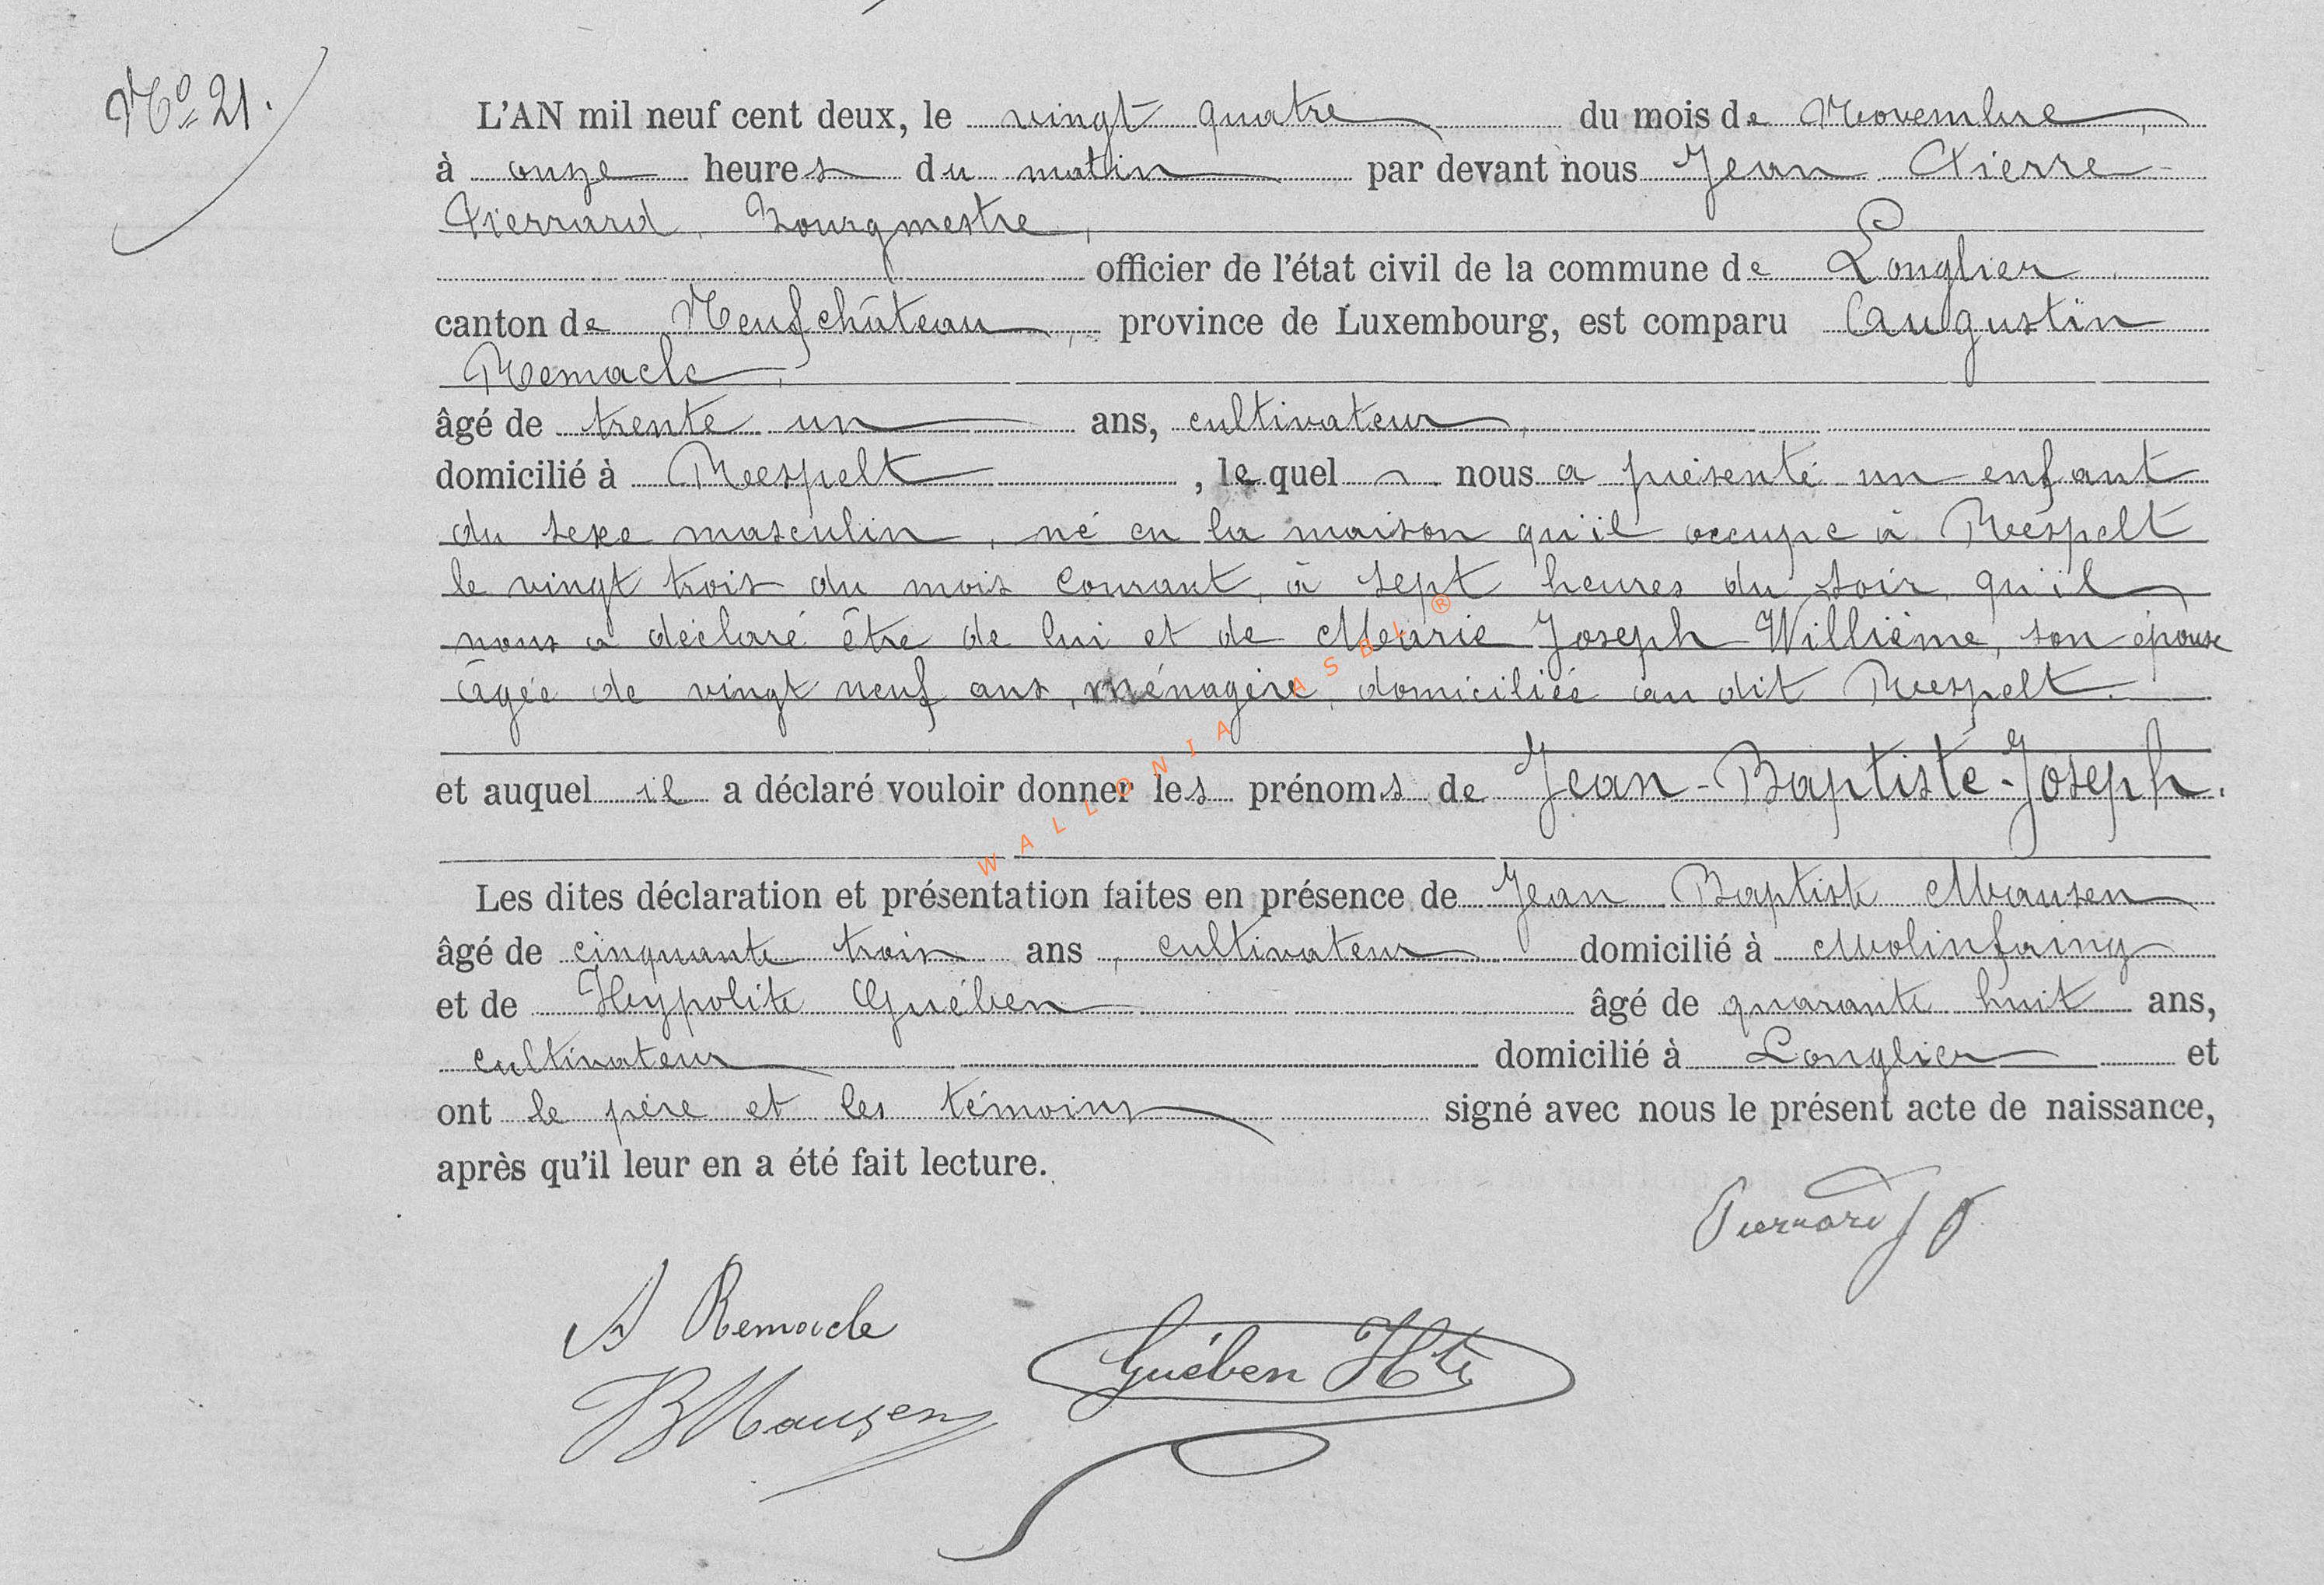 N° 21.
L'AN mil neuf cent deux, le vingt quatre du mois de Novembre,
à onze heures du matin par devant nous Jean Pierre
Pierrard, Bourgmestre,
officier de l'état civil de la commune de Longlier,
canton de Neufchâteau, province de Luxembourg, est comparu Augustin
Remacle,
âgé de trente un ans, cultivateur,
domicilié à Respelt, lequel nous a présenté un enfant
du sexe masculin, né en la maison qu'il occupe à Respelt
le vingt trois du mois courant, à sept heures du soir, qu'il
nous a déclaré être de lui et de Marie Joseph Willième, son épouse
âgée de vingt neuf ans, ménagère, domiciliée au dit Respelt.
et auquel il a déclaré vouloir donner les prénoms de Jean-Baptiste-Joseph.
Les dites déclaration et présentation faites en présence de Jean Baptiste Mausen
âgé de cinquante trois ans, cultivateur domicilié à Molinfaing
et de Hypolite Guében âgé de quarante huit ans,
cultivateur domicilié à Longlier et
ont le père et les témoins signé avec nous le présent acte de naissance,
après qu'il leur en a été fait lecture.
Pierrard J P
A Remacle
JB Mausen
Guében Hte
WALLONIA ASBL ®